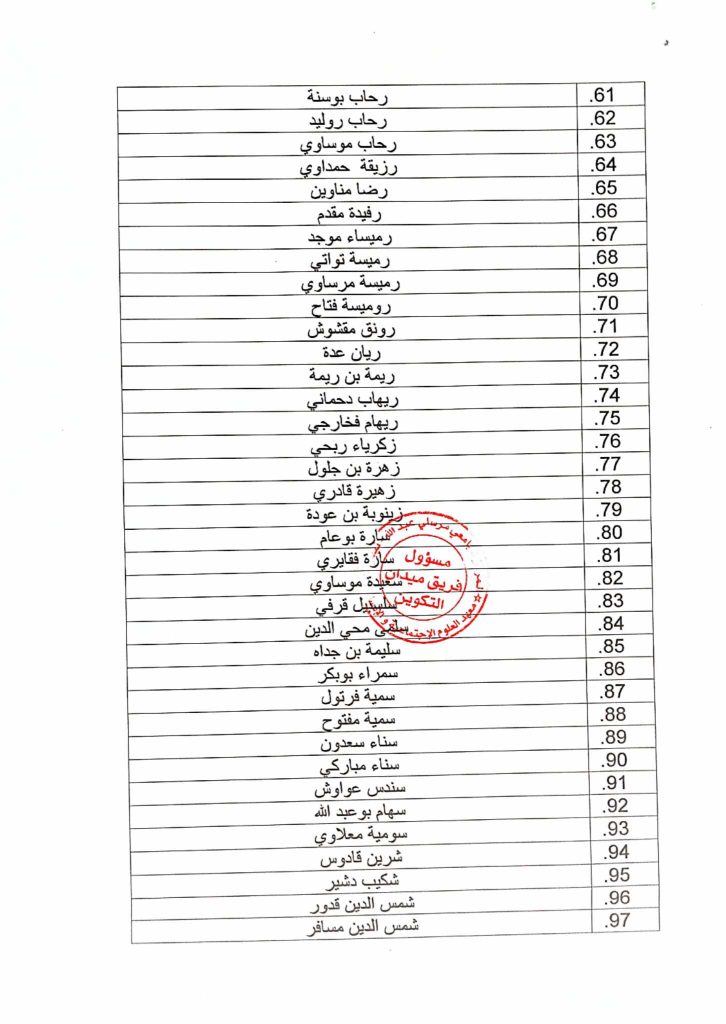 61. رحاب بوسنة
62. رحاب روليد
63. رحاب موساوي
64. رزيقة حمداوي
65. رضا مناوين
66. رفيدة مقدم
67. رميساء موجد
68. رميسة تواتي
69. رميسة مرساوي
70. روميسة فتاح
71. رونق مقشوش
72. ريان عدة
73. ريمة بن ريمة
74. ريهاب دحماني
75. ريهام فخارجي
76. زكرياء ربحي
77. زهرة بن جلول
78. زهيرة قادري
79. زينوبة بن عودة
80. سارة بوعام
81. سارة فقايري
82. سعيدة موساوي
83. سلسبيل قرفي
84. سلمى محي الدين
85. سليمة بن جداه
86. سمراء بوبكر
87. سمية فرتول
88. سمية مفتوح
89. سناء سعدون
90. سناء مباركي
91. سندس عواوش
92. سهام بوعبد الله
93. سومية معلاوي
94. شرين قادوس
95. شكيب دشير
96. شمس الدين قدور
97. شمس الدين مسافر
مرسلي عبد الله
مسؤول
فريق ميدان
التكوين
معهد العلوم الإجتماعية و